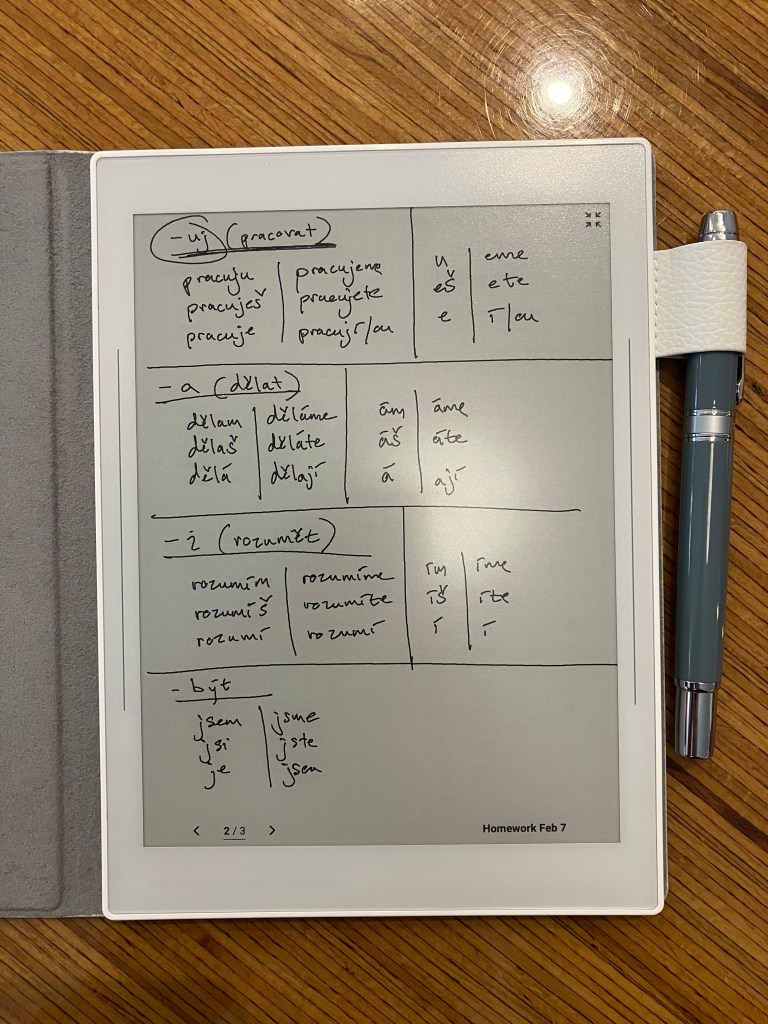 -uj (pracovat)
pracuju | pracujeme | u | eme
pracuješ | pracujete | eš | ete
pracuje | pracují/ou | e | í/ou
- a (dělat)
dělam | děláme | ám | áme
dělaš | děláte | áš | áte
dělá | dělají | á | ají
- i (rozumět)
rozumím | rozumíme | ím | íme
rozumíš | rozumíte | íš | íte
rozumí | rozumí | í | í
- být
jsem | jsme
jsi | jste
je | jsou
< 2 / 3 > Homework Feb 7